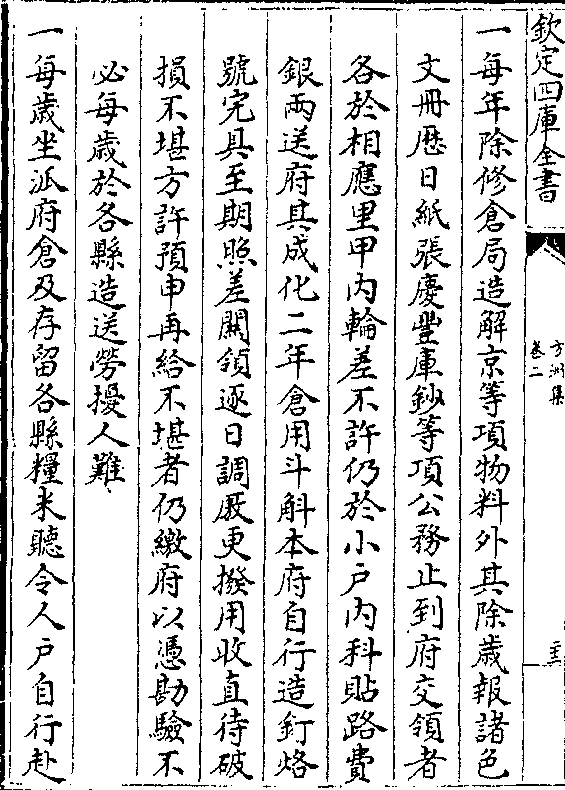 欽定四庫全書
方洲集
卷二
一每年除修倉局造解京等項物料外其除歲報諸色
文冊歷日紙張慶豐庫鈔等項公務止到府交領者
各於相應里甲内輪差不許仍於小户内科貼路費
銀兩送府其成化二年倉用斗斛本府自行造釘烙
號完具至期照差關領逐日調厫更撥用收直待破
損不堪方許預申再給不堪者仍繳府以憑勘驗不
必每歲於各縣造送勞擾人難
一每歲坐派府倉及存留各縣糧米聽令人户自行赴